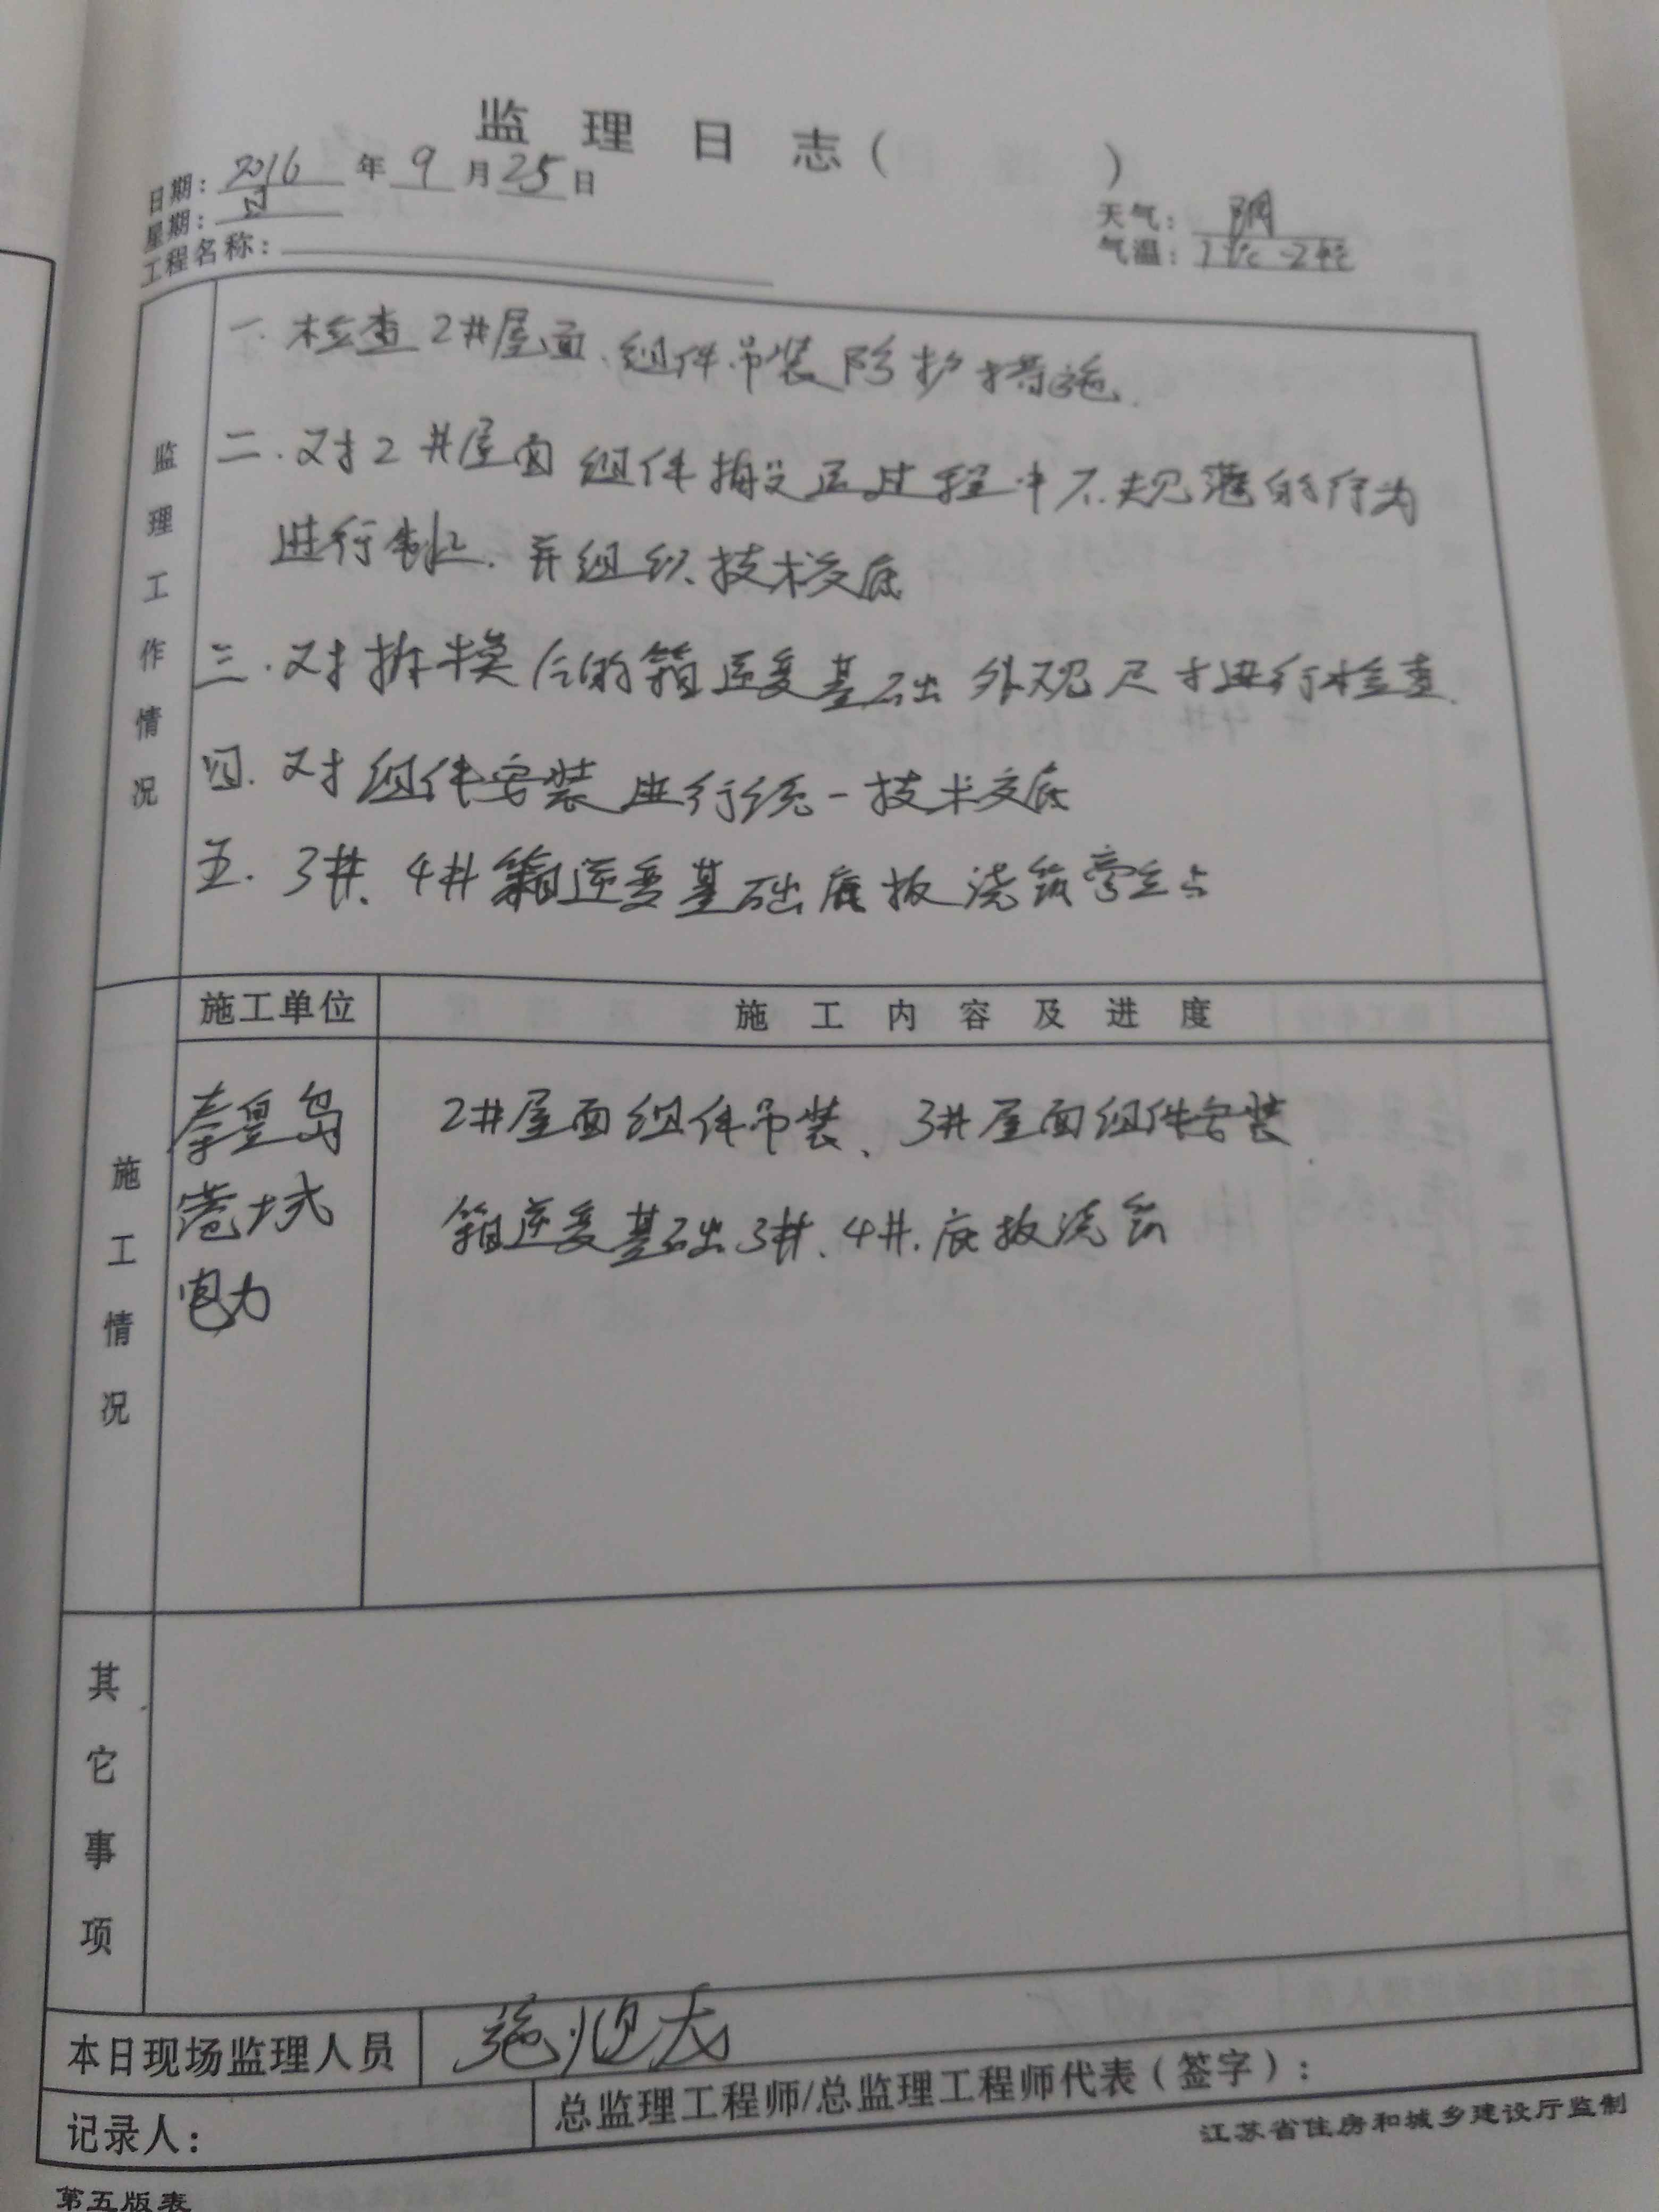 监理日志（ ）
日期：2016年9月25日
星期：日
工程名称：
天气：阴
气温：1 ℃-24℃
监理工作情况
一.检查2#屋面、组件吊装防护措施.
二.对2#屋面组件搬运过程中不规范的行为
进行制止.并组织技术交底
三.对拆模后的箱逆变基础外观尺寸进行检查.
四.对组件安装进行统一技术交底
五.3#、4#箱逆变基础底板浇筑旁站
施工情况
施工单位
施工内容及进度
秦皇岛
港城
电力
2#屋面组件吊装、3#屋面组件安装
箱逆变基础3#、4#.底板浇筑
其它事项
本日现场监理人员
施
记录人：
总监理工程师/总监理工程师代表（签字）：
江苏省住房和城乡建设厅监制
第五版表